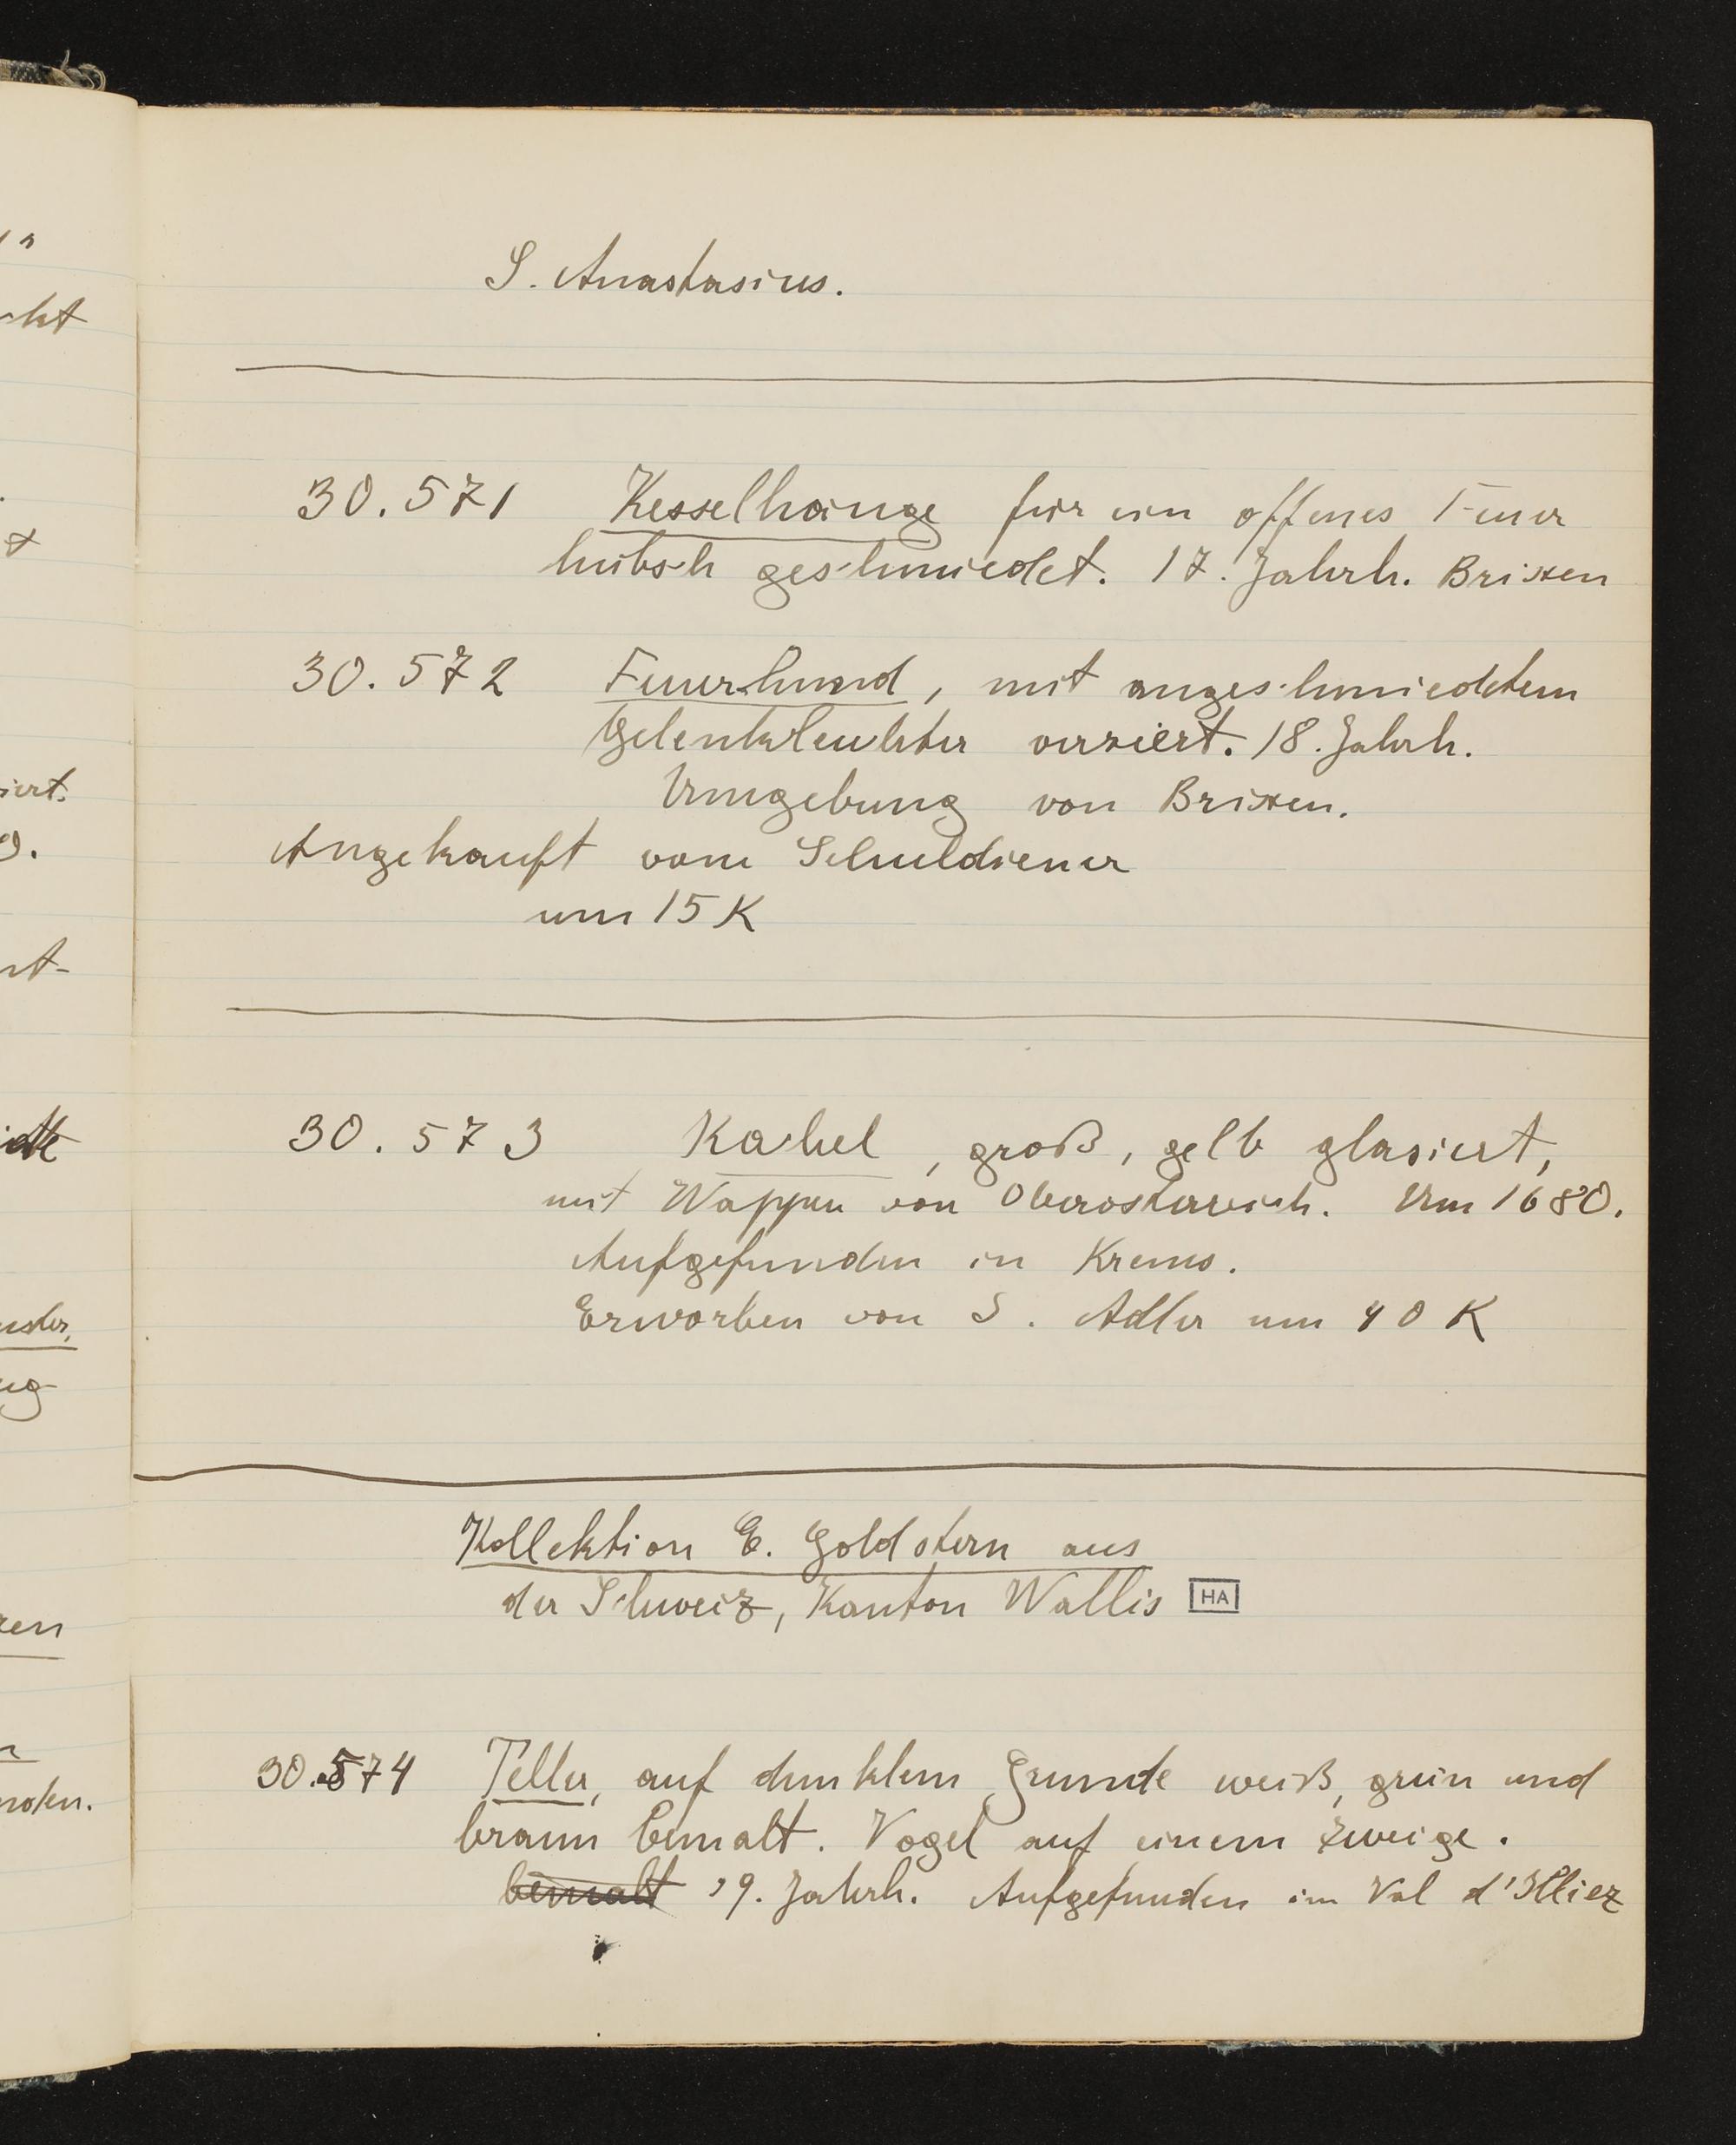 S. Anastasius.
30.571 Kesselhänge für ein offenes Feuer
hübsch geschmiedet. 17. Jahrh. Brixen
30.572 Feuerhund, mit angeschmiedetem
Gelenkleuchter verziert. 18. Jahrh.
Umgebung von Brixen.
Angekauft vom Schuldiener
um 15 K
30.573 Kachel, groß, gelb glasiert,
mit Wappen von Oberösterreich. Um 1680.
Aufgefunden in Krems.
Erworben von S. Adler um 40 K
Kollektion E. Goldstern aus
der Schweiz, Kanton Wallis HA
30.574 Teller, auf dunklem Grunde weiß, grün und
braun bemalt. Vogel auf einem Zweige.
bemalt 19. Jahrh. Aufgefunden im Val d'Illiez